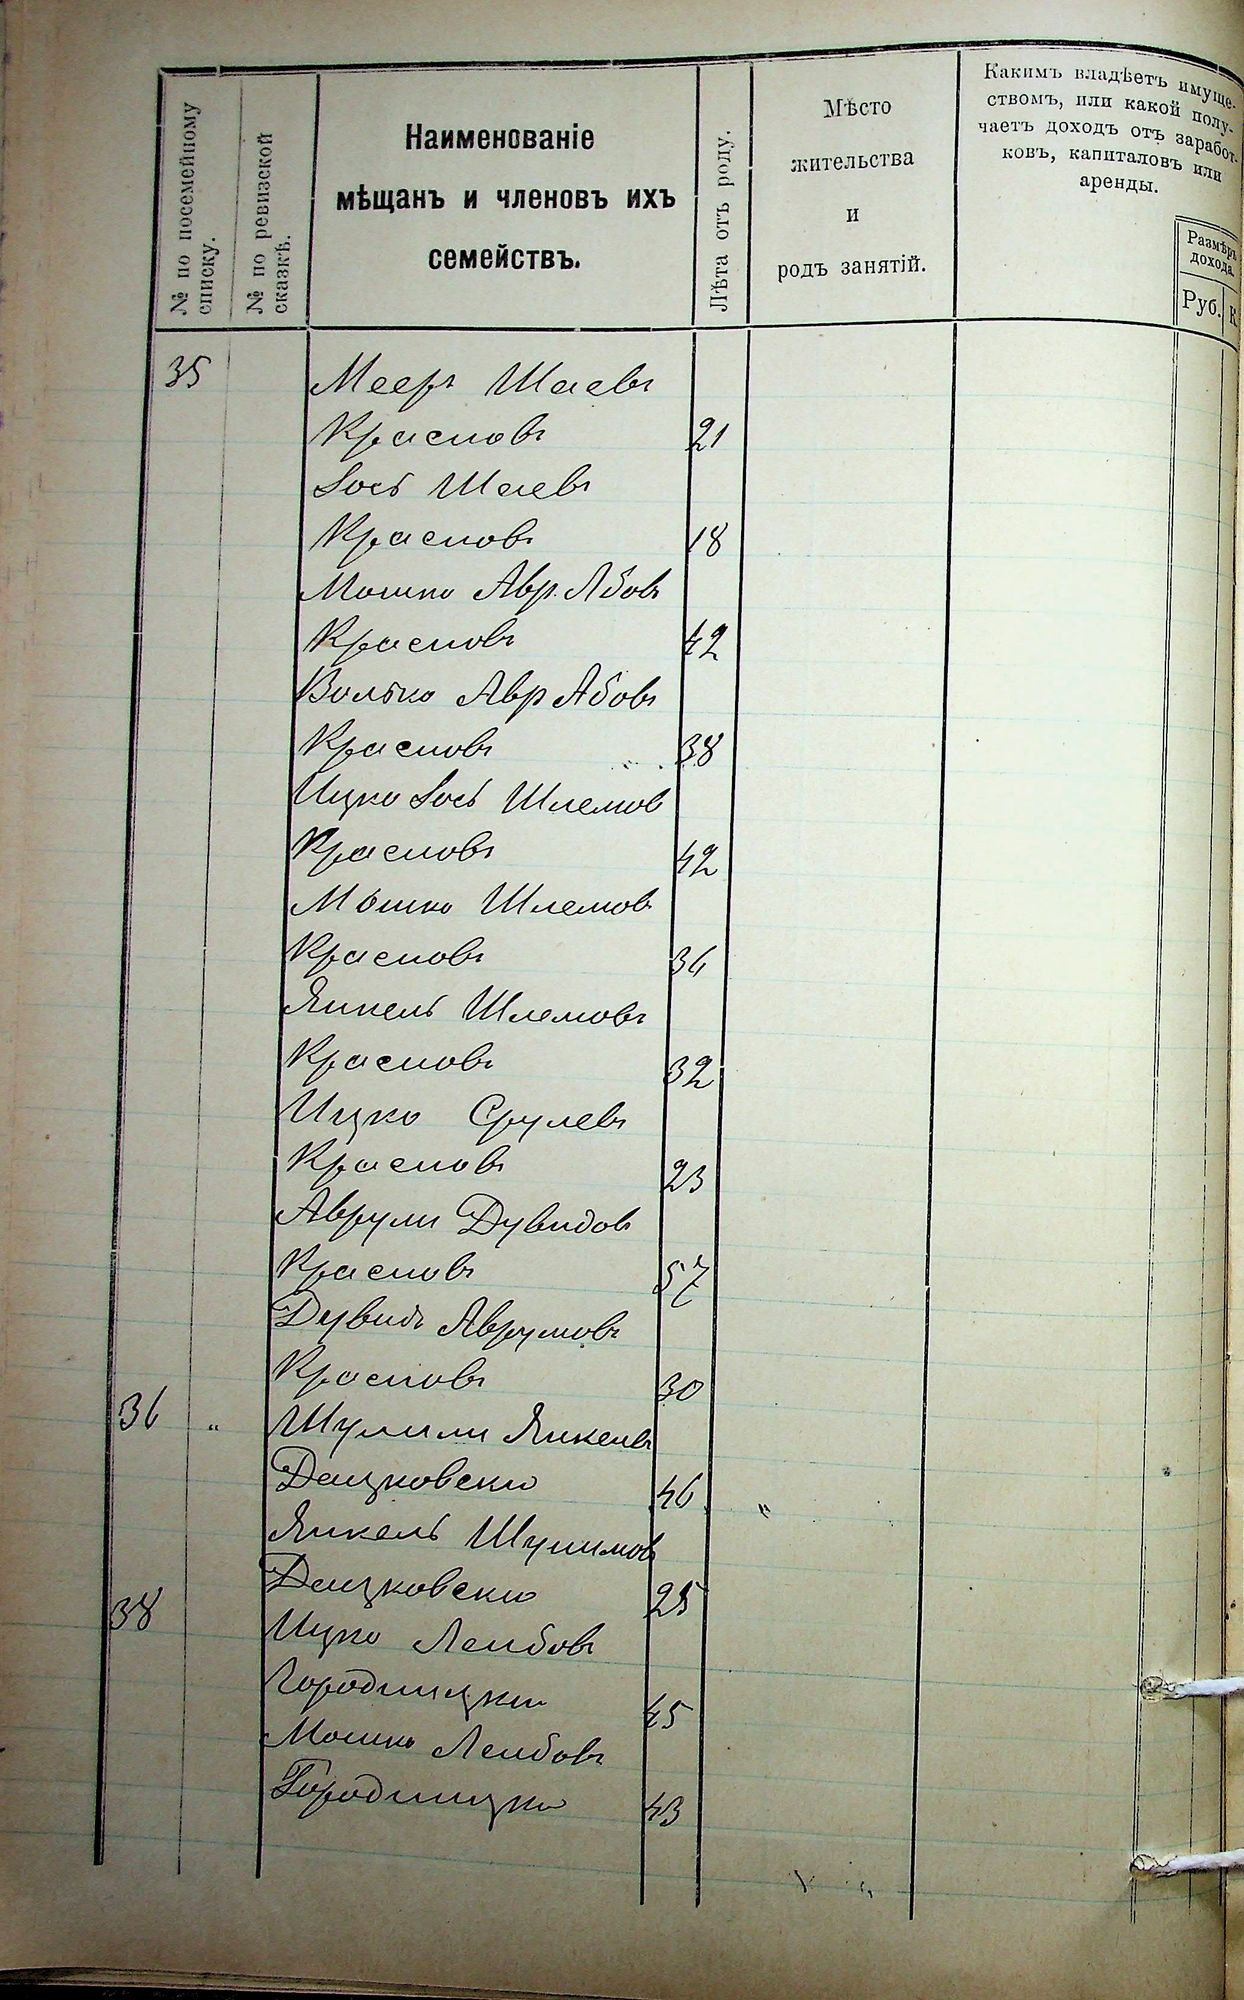 № по посемейному
списку.
№ по ревизской
сказкѣ.
Наименованіе
мѣщанъ и членовъ ихъ
семействъ.
Лѣта отъ роду.
Мѣсто
жительства
и
родъ занятій.
Какимъ владѣетъ имуще-
ствомъ, или какой полу-
чаетъ доходъ отъ заработ-
ковъ, капиталовъ или
аренды.
Размѣръ
дохода.
Руб. К.
35 Мееръ Шаевъ
Красновъ 21
Іось Шаевъ
Красновъ 18
Мошко Авр. Абовъ
Красновъ 42
Волько Авр Абовъ
Красновъ 38
Ицко Іось Шлемов
Красновъ 42
Мошко Шлемов
Красновъ 36
Янкель Шлемовъ
Красновъ 32
Ицко Срулевъ
Красновъ 23
Аврумъ Дувидовъ
Красновъ 57
Дувидъ Аврумовъ
Красновъ 30
36 " Шулимъ Янкелев
46 "
Янкель Шулимов
25
38 Ицко Лейбовъ
Городницки 45
Мошко Лейбовъ
Городницки 43